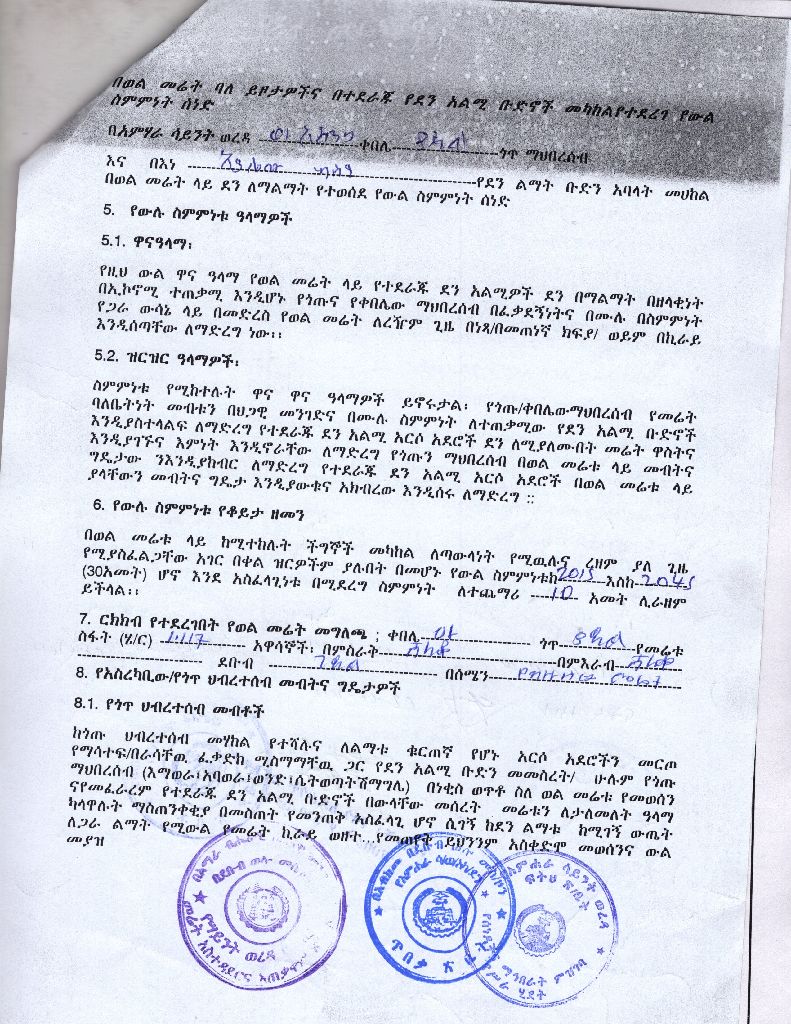 በወል መሬት ባለ ይዞታዎችና በተደራጁ የደን አልሚ ቡድኖች መካከልየተደረገ የውል
ስምምነት ሰነድ
በአምሃራ ሳይንት ወረዳ ቀበሌ ጎጥ ማህበረሰብ
እና በእነ የደን ልማት ቡድን አባላት መሀከል
በወል መሬት ላይ ደን ለማልማት የተወሰደ የውል ስምምነት ሰነድ
5. የውሉ ስምምነቱ ዓላማዎች
5.1. ዋናዓላማ፡
የዚህ ውል ዋና ዓላማ የወል መሬት ላይ የተደራጁ ደን አልሚዎች ደን በማልማት በዘላቂነት
በኢኮኖሚ ተጠቃሚ እንዲሆኑ የጎጡና የቀበሌው ማህበረሰብ በፈቃደኝነትና በሙሉ በስምምነት
የጋራ ውሳኔ ላይ በመድረስ የወል መሬት ለረዥም ጊዜ በነጻ/በመጠነኛ ክፍያ/ ወይም በኪራይ
እንዲሰጣቸው ለማድረግ ነው፡፡
5.2. ዝርዝር ዓላማዎች፡
ስምምነቱ የሚከተሉት ዋና ዋና ዓላማዎች ይኖሩታል፡ የጎጡ/ቀበሌውማህበረሰብ የመሬት
ባለቤትነት መብቱን በህጋዊ መንገድና በሙሉ ስምምነት ለተጠቃሚው የደን አልሚ ቡድኖች
እንዲያስተላልፍ ለማድረግ የተደራጁ ደን አልሚ አርሶ አደሮች ደን ለሚያለሙበት መሬት ዋስትና
እንዲያገኙና እምነት እንዲኖራቸው ለማድረግ የጎጡን ማህበረሰብ በወል መሬቱ ላይ መብትና
ግዴታው ንእንዲያከብር ለማድረግ የተደራጁ ደን አልሚ አርሶ አደሮች በወል መሬቱ ላይ
ያላቸውን መብትና ግዴታ እንዲያውቁና አክብረው እንዲሰሩ ለማድረግ ፡፡
6. የውሉ ስምምነቱ የቆይታ ዘመን
በወል መሬቱ ላይ ከሚተከሉት ችግኞች መካከል ለጣውላነት የሚዉሉና ረዘም ያለ ጊዜ
የሚያስፈልጋቸው አገር በቀል ዝርዎችም ያሉበት በመሆኑ የውል ስምምነቱከ 2015 እስከ 2045
(30አመት) ሆኖ እንደ አስፈላጊነቱ በሚደረግ ስምምነት ለተጨማሪ 10 አመት ሊራዘም
ይችላል፡፡
7. ርክክብ የተደረገበት የወል መሬት መግለጫ ; ቀበሌ ጎጥ የመሬቱ
ስፋት (ሄ/ር) አዋሳኞች፡ በምስራቅ በምእራብ
ደቡብ በሰሜን
8. የአስረካቢው/የጎጥ ህብረተሰብ መብትና ግዴታዎች
8.1. የጎጥ ህብረተሰብ መብቶች
ከጎጡ ህብረተሰብ መሃከል የተሻሉና ለልማቱ ቁርጠኛ የሆኑ አርሶ አደሮችን መርጦ
የማሳተፍ/በራሳቸዉ ፈቃድከ ሚስማማቸዉ ጋር የደን አልሚ ቡድን መመስረት/ ሁሉም የጎጡ
ማህበረሰብ (እማወራ፣አባወራ፣ወንድ፣ሴትወጣትሽማግሌ) በንቂስ ወጥቶ ስለ ወል መሬቱ የመወሰን
ናየመፈራረም የተደራጁ ደን አልሚ ቡድኖች በውላቸው መሰረት መሬቱን ለታለመለት ዓላማ
ካላዋሉት ማስጠንቀቂያ በመስጠት የመንጠቅ አስፈላጊ ሆኖ ሲገኝ ከደን ልማቱ ከሚገኝ ውጤት
ለጋራ ልማት የሚውል የመሬት ኪራይ ወዘተ የመጠየቅ ይህንንም አስቀድሞ መወሰንና ውል
መያዝ